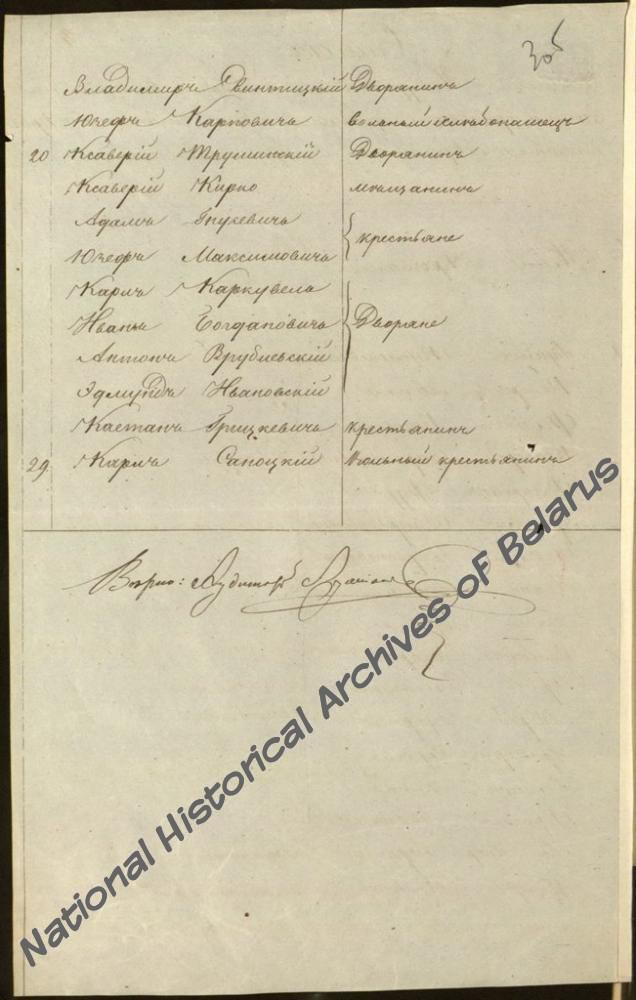 305
Владимиръ Двинтицкій Дворянинъ
Юзефъ Карповичъ вольный хлѣбопашецъ
20 Ксаверій Трулинскій Дворянинъ
Ксаверій Кирко мѣщанинъ
Адамъ
Юзефъ Максимовичъ крестьяне
Карлъ Каркувель
Иванъ Богдановичъ Дворяне
Антонъ Врублевскій
Эдмундъ Ивановскій
Каетанъ Грицкевичъ крестьянинъ
29 Карлъ Сапоцкій Вольный крестьянинъ
Вѣрно: Аудиторъ
National Historical Archives of Belarus